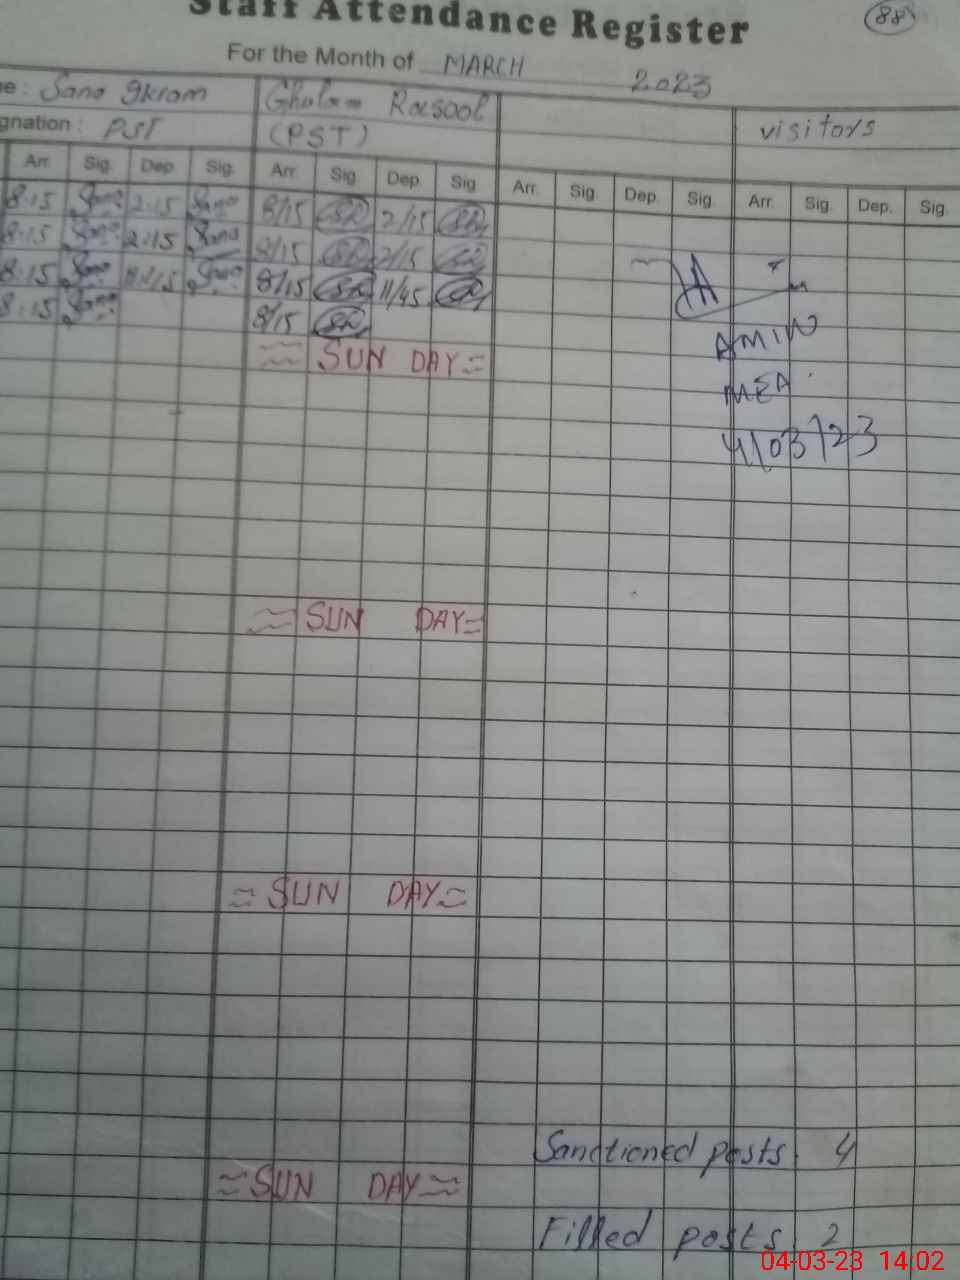 Staff Attendance Register
88
For the Month of MARCH 2023
e : Sana Ikram Ghulam Rasool
gnation : PST (PST) visitors
Arr. Sig. Dep. Sig. Arr. Sig. Dep. Sig. Arr. Sig. Dep. Sig. Arr. Sig. Dep. Sig.
8.15 Sana 2.15 Sana 8/15 2/15
8.15 Sana 2.15 Sana 8/15 2/15
8.15 Sana Sana 8/15 11/45
8.15 Sana 8/15
SUN DAY
AMIN
MEA
4/03/23
SUN DAY
SUN DAY
Sanctioned posts 4
SUN DAY
Filled posts 2
04-03-23 14:02